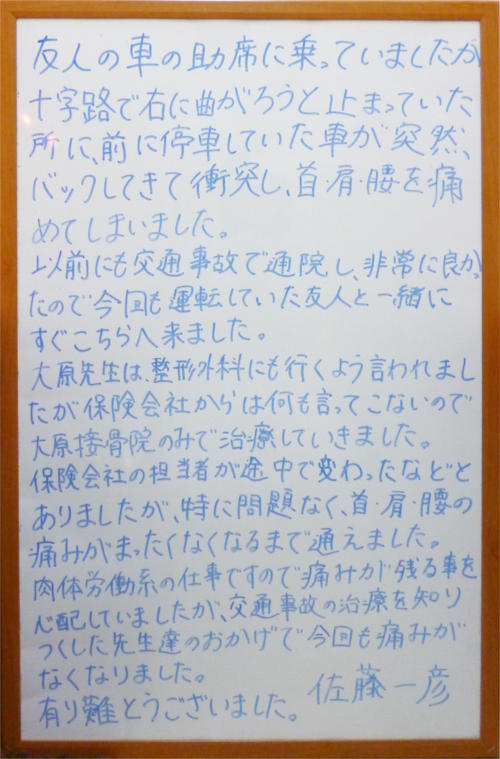 友人の車の助席に乗っていましたが
十字路で右に曲がろうと止まっていた
所に、前に停車していた車が突然、
バックしてきて衝突し、首・肩・腰を痛
めてしまいました。
以前にも交通事故で通院し、非常に良かっ
たので今回も運転していた友人と一緒に
すぐこちらへ来ました。
大原先生は、整形外科にも行くよう言われまし
たが保険会社からは何も言ってこないので
大原接骨院のみで治療していきました。
保険会社の担当者が途中で変わったなどと
ありましたが、特に問題なく、首・肩・腰の
痛みがまったくなくなるまで通えました。
肉体労働系の仕事ですので痛みが残る事を
心配していましたが、交通事故の治療を知り
つくした先生達のおかげで今回も痛みが
なくなりました。
有り難とうございました。
佐藤一彦